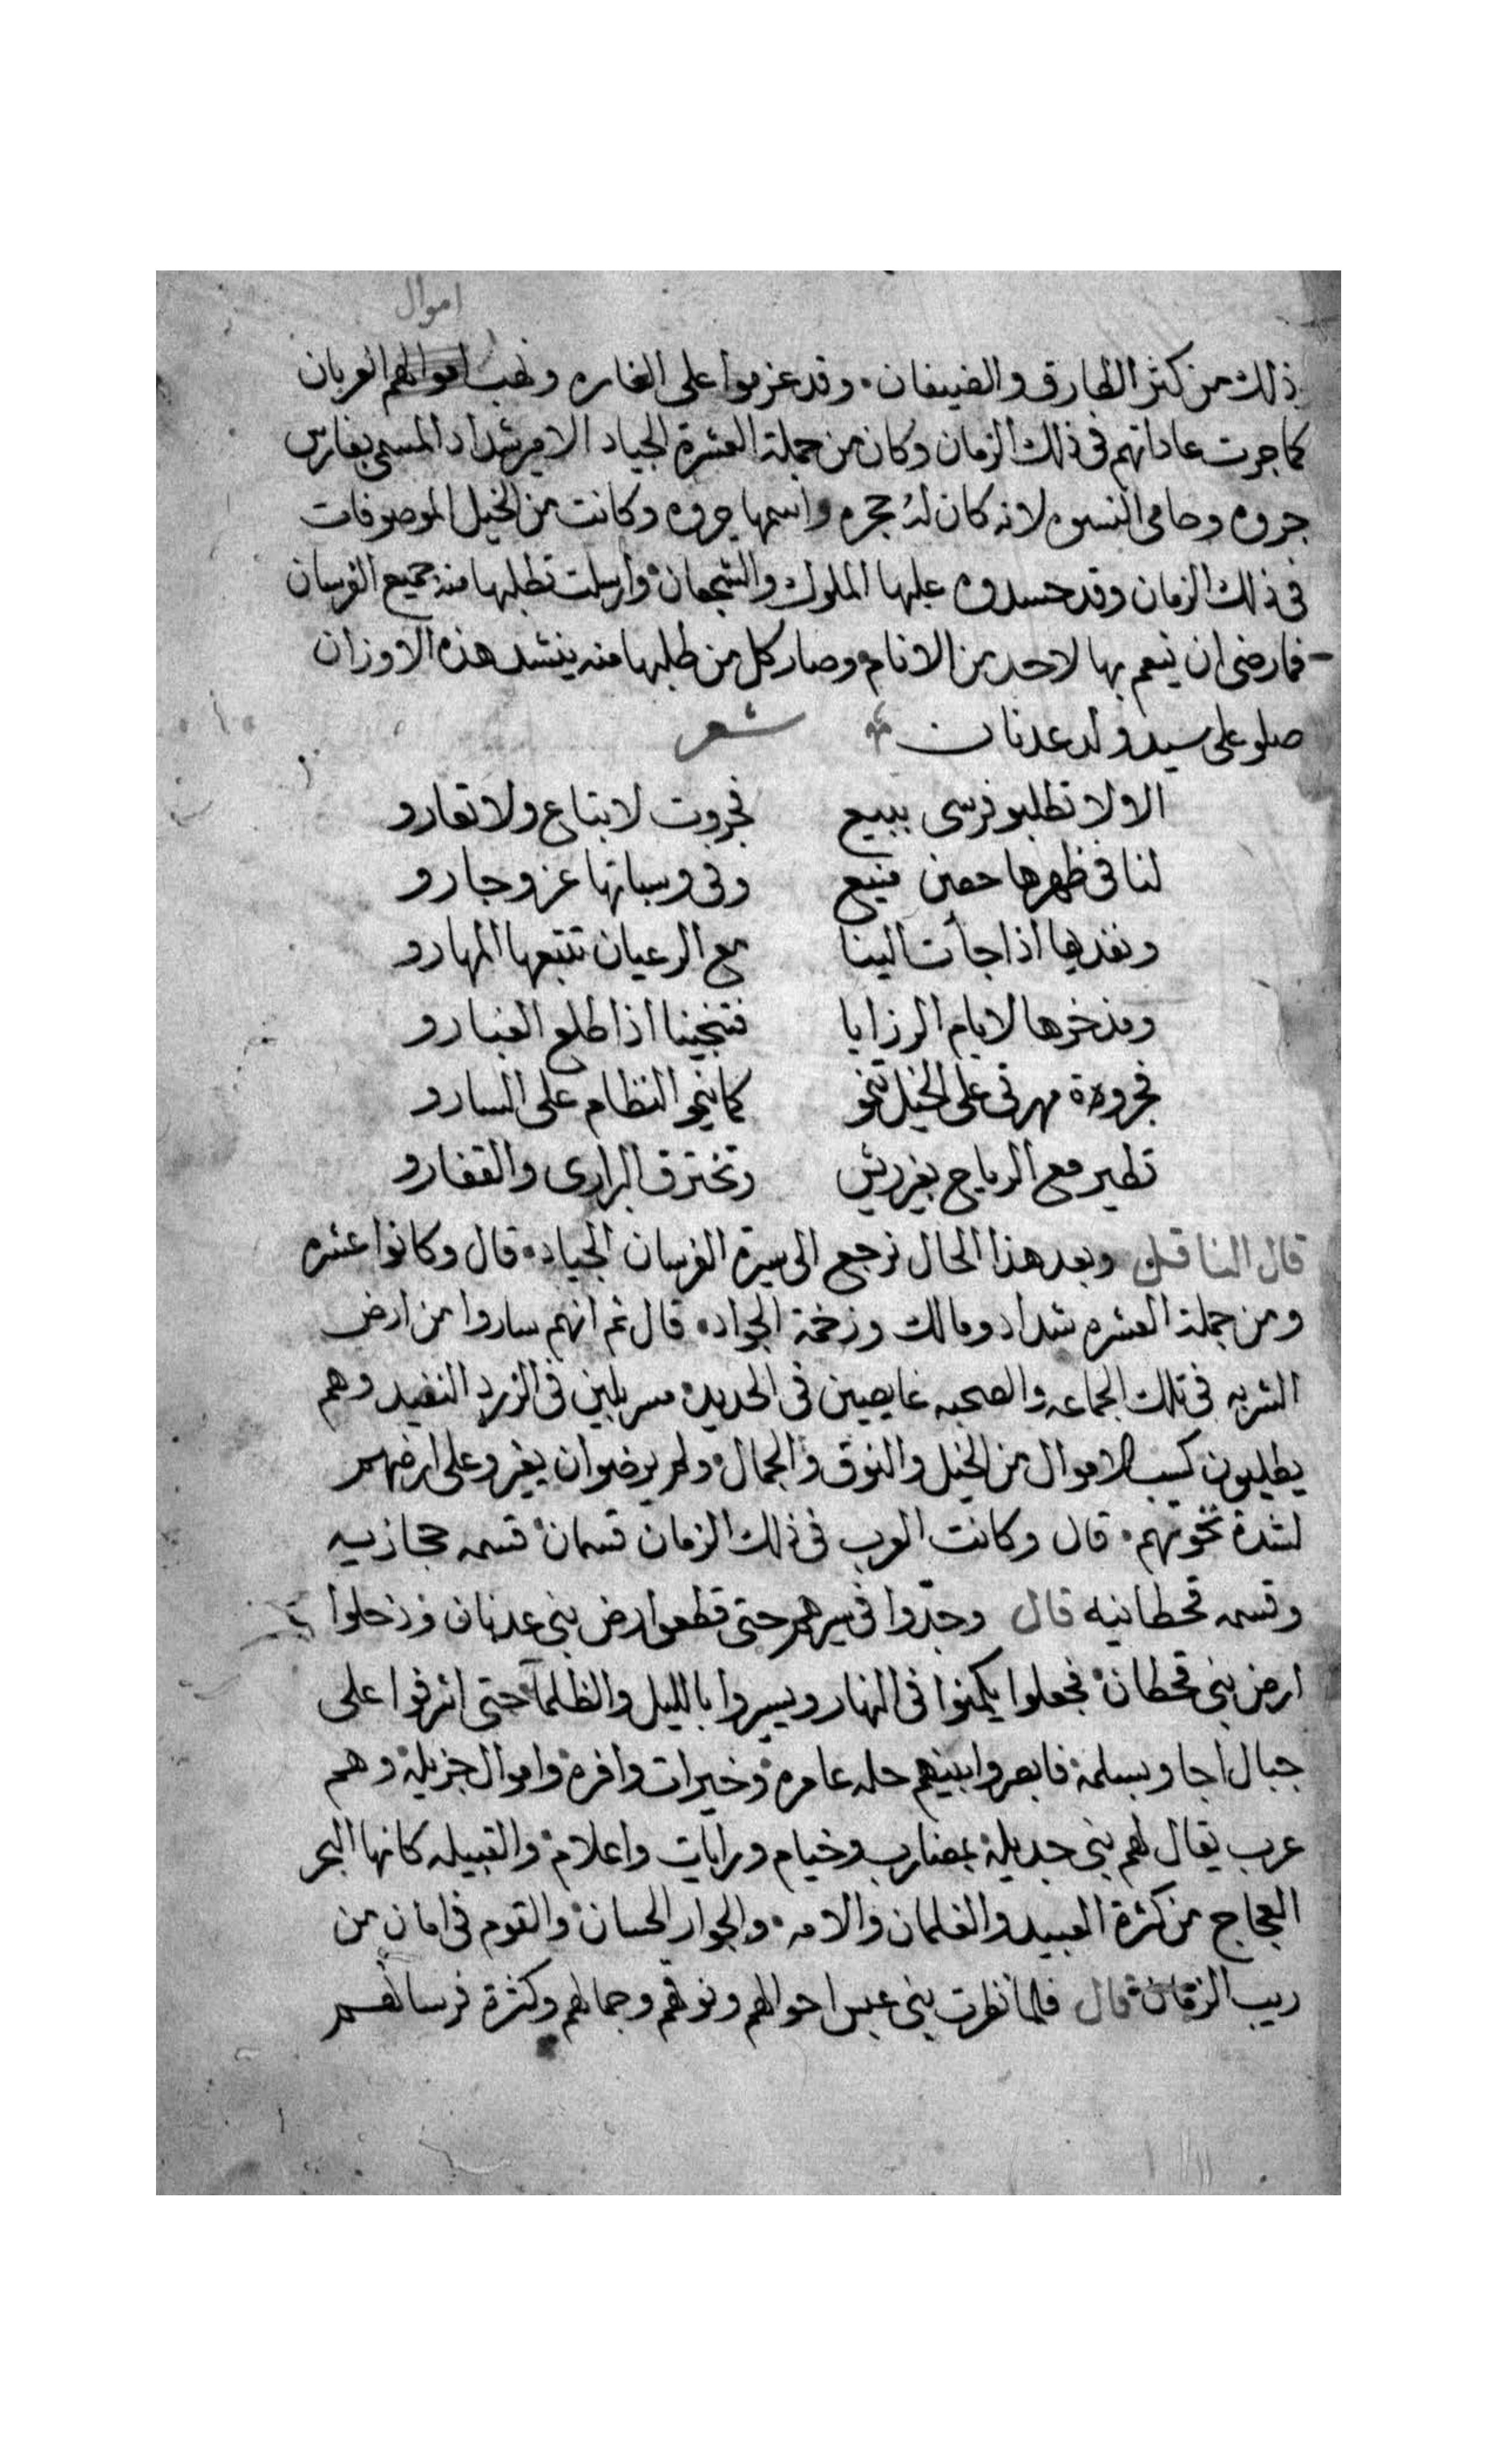 اموال
ذلك من كثر الطارق والضيفان وقد عزموا على الغاره ونهب اموالهم العربان
كما جرت عاداتهم فى ذلك الزمان وكان من جملة العشرة الجياد الامير شداد المسمى بفارس
جروه وحامى النسوه لانه كان له حجره واسمها جروه وكانت من الخيل الموصوفات
فى ذلك الزمان وقد حسدوه عليها الملوك والشجعان وارسلت تطلبها منه جميع الفرسان
فما رضى ان ينعم بها لاحد من الانام وصار كل من طلبها منه ينشد هذه الاوزان
صلو على سيد ولد عدنان شعر
الا ولا تطلبو فرسى ببيع فجروت لا بتاع ولا تعارو
لنا فى ظهرها حصن منيع وفى وسباتها عز وجارو
ونفديها اذا جأت الينا مع الرعيان تتبعها المهارو
ونذخرها لايام الرزايا فتنجينا اذا طلع الغبارو
فجروة مهرتى على الخيل تنخو كما ينخو النظام على السارو
تطير مع الرياح بغير ريش وتخترق البرارى والقفارو
قال الناقل وبعد هذا الحال نرجع الى سيرة الفرسان الجياد قال وكانوا عشره
ومن جملة العشره شداد ومالك وزخمة الجواد قال ثم انهم ساروا من ارض
الشربه فى تلك الجماعه والصحبه غايصين فى الحديد مسربلين فى الزرد النضيد وهم
يطلبون كسب الاموال من الخيل والنوق والجمال ولم يرضوا ان يغيرو على ارضهم
لشدة نخوتهم قال وكانت العرب فى ذلك الزمان قسمان قسمه حجازيه
وقسمه قحطانيه قال وجدّوا فى سيرهم حتى قطعوا ارض بنى عدنان ودخلوا
ارض بنى قحطان فجعلوا يكمنوا فى النهار ويسيروا بالليل والظلمآ حتى اشرفوا على
جبال اجا وبسلمة فابصروا بينهم حله عامره وخيرات وافره واموال جزيلة وهم
عرب يقال لهم بنى جديلة بمضارب وخيام ورايات واعلام والقبيله كانها البحر
العجاج من كثرة العبيد والغلمان والامه والجوار الحسان والقوم فى امان من
ريب الزمان قال فلما نظرت بنى عبس احوالهم ونوقهم وجمالهم وكثرة فرسانهم